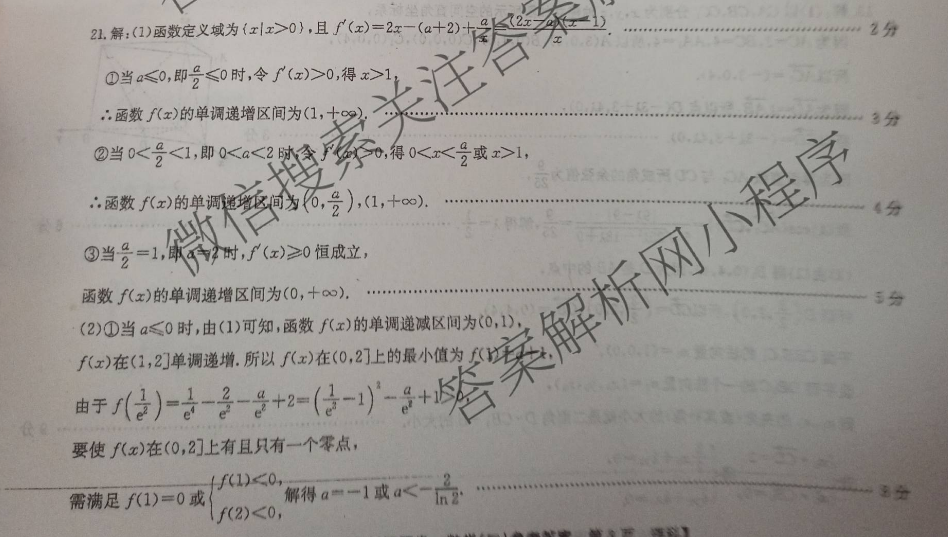 21.解:(1)函数定义域为{x|x>0},且 f′(x)=2x-(a+2)+a/x=(2x-a)(x-1)/x. 2分
①当a≤0,即a/2≤0时,令 f′(x)>0,得x>1,
∴函数 f(x)的单调递增区间为(1,+∞). 3分
②当0<a/2<1,即0<a<2时,令 f′(x)>0,得0<x<a/2或x>1,
∴函数 f(x)的单调递增区间为(0,a/2),(1,+∞). 4分
③当a/2=1,即a=2时,f′(x)≥0恒成立,
函数 f(x)的单调递增区间为(0,+∞). 5分
(2)①当a≤0时,由(1)可知,函数 f(x)的单调递减区间为(0,1),
f(x)在(1,2]单调递增.所以 f(x)在(0,2]上的最小值为 f(1)=a+1,
由于 f(1/e²)=1/e⁴-2/e²-a/e²+2=(1/e²-1)²-a/e²+1>0
要使 f(x)在(0,2]上有且只有一个零点,
需满足 f(1)=0或{f(1)<0, f(2)<0, 解得a=-1或a<-2/ln2. 8分
微信搜索关注答案
答案解析网小程序